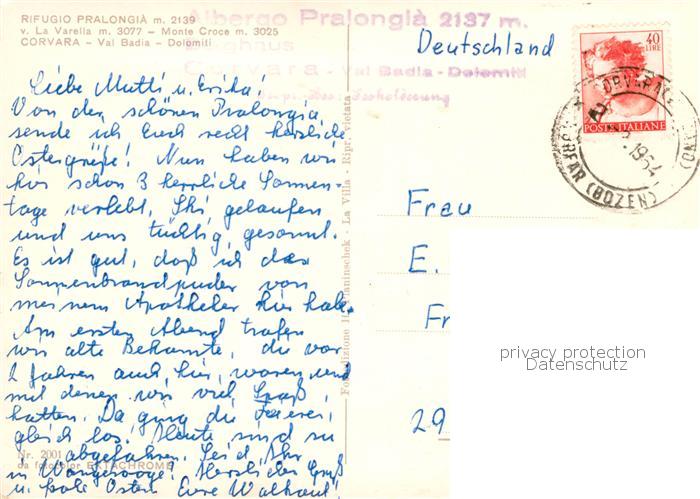 RIFUGIO PRALONGIÀ m. 2139
v. La Varella m. 3077 - Monte Croce m. 3025
CORVARA - Val Badia - Dolomiti
Albergo Pralongià 2137 m.
Berghaus
Corvara - Val Badia - Dolomiti
Deutschland
40
LIRE
POSTE ITALIANE
CORVARA
1964
(BOZEN)
Liebe Mutti u. Erika!
Von den schönen Pralongia
sende ich Euch recht herzliche
Ostergrüße! Nun haben wir
hier schon 3 herrliche Sonnen-
tage verlebt, Ski gelaufen
und uns tüchtig gesonnt.
Es ist gut, daß ich das
Sonnenbrandpuder von
meinem Apotheker hier habe.
Am ersten Abend trafen
wir alte Bekannte, die vor
2 Jahren auch hier waren und
mit denen wir viel Spaß
hatten. Da ging die Feierei
gleich los. Heute sind sie
abgefahren. Seid Ihr
in Wangerooge? Herzliche Grüß
u. frohe Ostern Eure Waltraut!
Nr. 2001
da fotocolor EKTACHROME
La Villa - Ripr. vietata
Frau
E.
Fr
29
privacy protection
Datenschutz